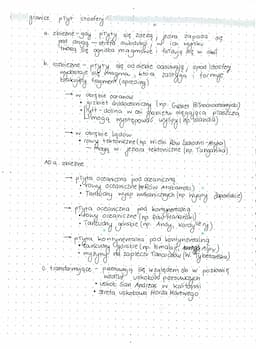 granice płyt litosfery
a. zbieżne - gdy płyty się zderzą, jedna zapada się
pod drugą - strefa subdukcji, w ich wyniku
tworzą się ogniska magmowe i fałdują się
b. rozbieżne - płyty się od siebie oddalają, spod litosfery
wydobywa się magma, która zastyga i formuje
→ w obrębie oceanów
• grzbiet śródoceaniczny (np. Grzbiet Północnoatlantycki)
ryft - dolina w osi
mogą występować wyspy (np. Islandia)
→ w obrębie lądów
• rowy tektoniczne (np. Wielki Rów
→ jeziora tektoniczne (np. Tanganika)
AD a. zbieżne
→ płyta oceaniczna pod oceaniczną
• rowy oceaniczne (np. Rów
• łańcuchy wysp wulkanicznych (np. Wyspy Japońskie)
→ płyta oceaniczna pod kontynentalną
• rowy oceaniczne (np. Rów
• łańcuchy górskie (np. Andy, Kordyliery)
→ płyta kontynentalna pod kontynentalną
• łańcuchy górskie (np. Himalaje, Alpy)
• wyżyny na zapleczu łańcuchów (W. Tybetańska)
c. transformujące - przesuwają się względem siebie w poziomie
wzdłuż uskoków przesuwczych
• uskok San Andreas w Kalifornii
• strefa uskokowa Morza Martwego